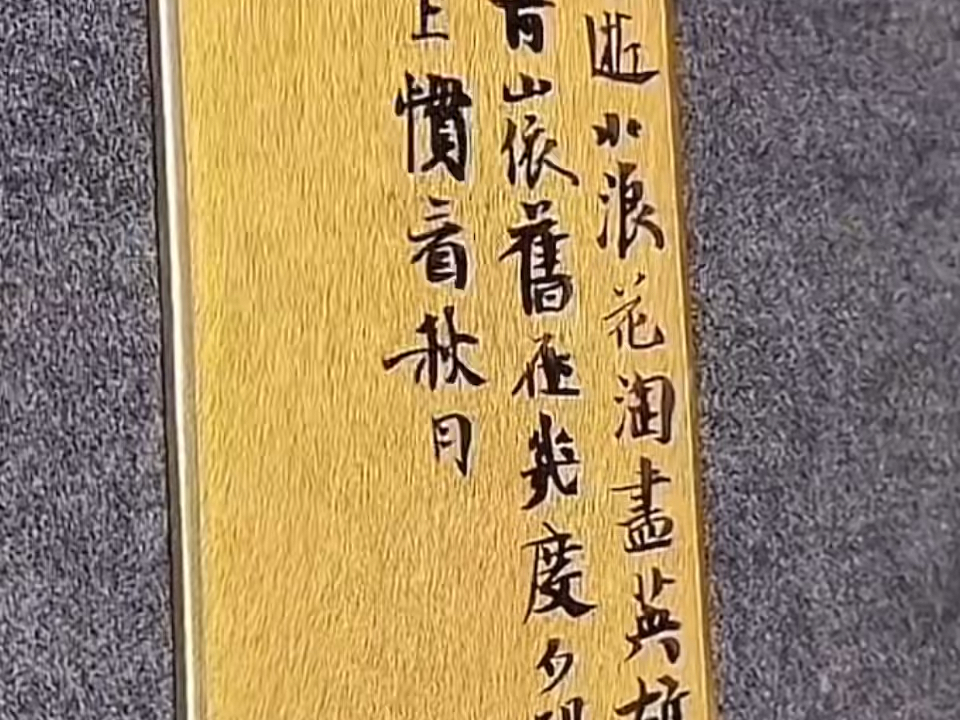 逝水浪花淘盡英雄
青山依舊在幾度夕
上慣看秋月